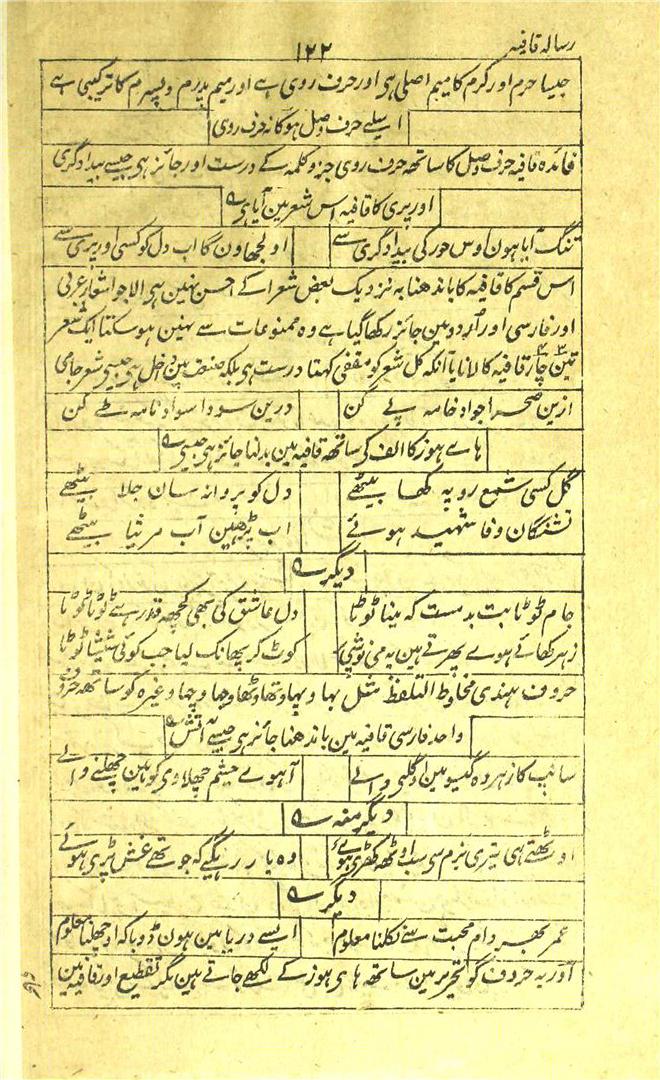 رسالہ قافیہ
۱۲۲
جیسا حرم اور کرم کا میم اصلی ہی اور حرف روی ہے اور میم پدرم و پسرم کا ترکیبی ہے
اسلیے حرف وصل ہوگا نہ حرف روی
فائدہ قافیہ حرف وصل کا ساتھ حرف روی جزو کلمہ کے درست اور جائز ہی جیسے بیدادگری
اور پری کا قافیہ اس شعر مین آیا ہی ؎
تنگ آیا ہون اوس حور کی بیدادگری سے اولجھاون گا اب دل کو کسی اور پری سے
اس قسم کا قافیہ کا باندھنا بہ نزدیک بعض شعرا کے احسن نہین ہی الا جو اشعار عربی
اور فارسی اور اردو مین جائز رکھا گیا ہے وہ ممنوعات سے نہین ہوسکتا ایک شعر
تین چار قافیہ کا لانا یا آنکہ کل شعر کو مقفی کہنا درست ہی بلکہ صنعت مین داخل ہی جیسی شعر جامی
ازین صحرا جواد خامہ پے کن درین سودا سواد نامہ طے کن
ہاے ہوز کا الف کی ساتھ قافیہ مین بدلنا جائز ہی جیسے ؎
گل کسی شمع رو پہ کھا بیٹھے دل کو پروانہ سان جلا بیٹھے
تشنگان وفا شہید ہوئے اب پڑھین آب مرثیا بیٹھے
دیگر ؎
جام ٹوٹا بت بدمست کہ مینا ٹوٹا دل عاشق کی بھی کچھ قدر ہے ٹوٹا ٹوٹا
زہر کھائے ہوے پھرتے ہین یہ می نوشی کوٹ کر پھانک لیا جب کوئی شیشا ٹوٹا
حروف ہندی مخلوط التلفظ مثل بہا و پہا و تھا و ٹھا و جھا و چھا وغیرہ کو ساتھ حروف
واحد فارسی قافیہ مین باندھنا جائز ہی جیسے آتش ؎
سانپ کا زہر وہ گیسو مین اوگلنی والے آہوے چشم چھلاوی کو ہین چھلنے والے
دیگر منہ ؎
اوٹھتے ہی تیری بزم سی سب اوٹھ کھڑی ہوئے وہ یار رہگیے کہ جو تھے غش پڑی ہوئے
دیگر ؎
عمر بھر دام محبت سے نکلنا معلوم ایسے دریا مین ہون ڈوبا کہ اوچھلنا معلوم
اور یہ حروف گو تحریر مین ساتھ ہای ہوز کے لکھے جاتے ہین مگر تقطیع اور قافیہ مین